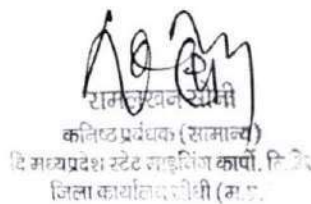 रामलखन सोनी
कनिष्ठ प्रबंधक (सामान्य)
दि मध्यप्रदेश स्टेट माइनिंग कार्पो. लि.
जिला कार्यालय सीधी (म.प्र.